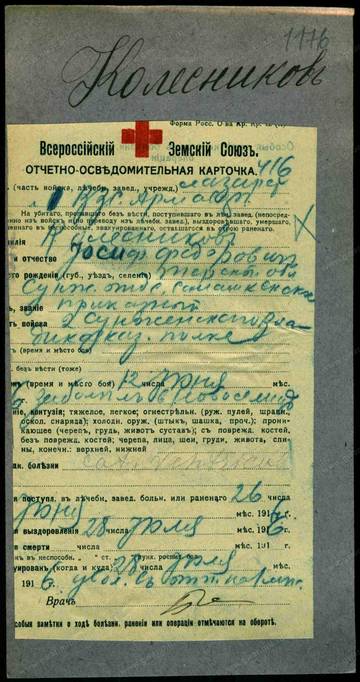 1176
Колесниковъ
Форма Росс. О-ва Кр. Кр.
Всероссійскій Земскій Союзъ.
ОТЧЕТНО-ОСВѢДОМИТЕЛЬНАЯ КАРТОЧКА.
416
(часть войскъ, лѣчебн. завед., учрежд.) лазаретъ
На убитаго, пропавшаго безъ вѣсти, поступившаго въ лѣч. завед. (непосред-
енно изъ войскъ или переводу изъ лѣчебн. завед.), выздоровѣвшаго, умерш-
еннаго въ неспособные, эвакуированнаго, оставшагося въ строю раненаго.
илія Колесниковъ
и отчество Іосифъ Федоровичъ
о рожденія (губ., уѣздъ, селеніе) Терской обл
Сунж. отд. Самашкинской
ь, званіе приказный
ь войска 2 Сунженскаго Вла-
дикавказ. полка
(время и мѣсто боя)
безъ вѣсти (тоже)
(время и мѣсто боя) 12 числа Іюня мѣс.
6 заболѣлъ въ
еніе, контузія; тяжелое, легкое; огнестрѣльн. (руж. пулей, шрапн.,
оскол. снаряда); холодн. оруж. (штык., шашка, проч.); прони-
кающее (черепъ, грудь, животъ, суставъ); съ поврежд. костей,
безъ поврежд. костей; черепа, лица, шеи, груди, живота, спи-
ны, конечн.: верхней, нижней
дн. болѣзни
и поступл. въ лѣчебн. завед. больн. или раненаго 26 числа
Іюня мѣс. 191 г.
и выздоровленія 28 Іюля мѣс. 191 6 г.
и смерти числа мѣс. 191 г.
нъ въ неспособн. „ “ ст.
уированъ (когда и куда) 28 Іюля мѣс.
191 6 увол. въ
Врачъ
собыя замѣтки о ходѣ болѣзни, раненія или операціи отмѣчаются на оборотѣ.